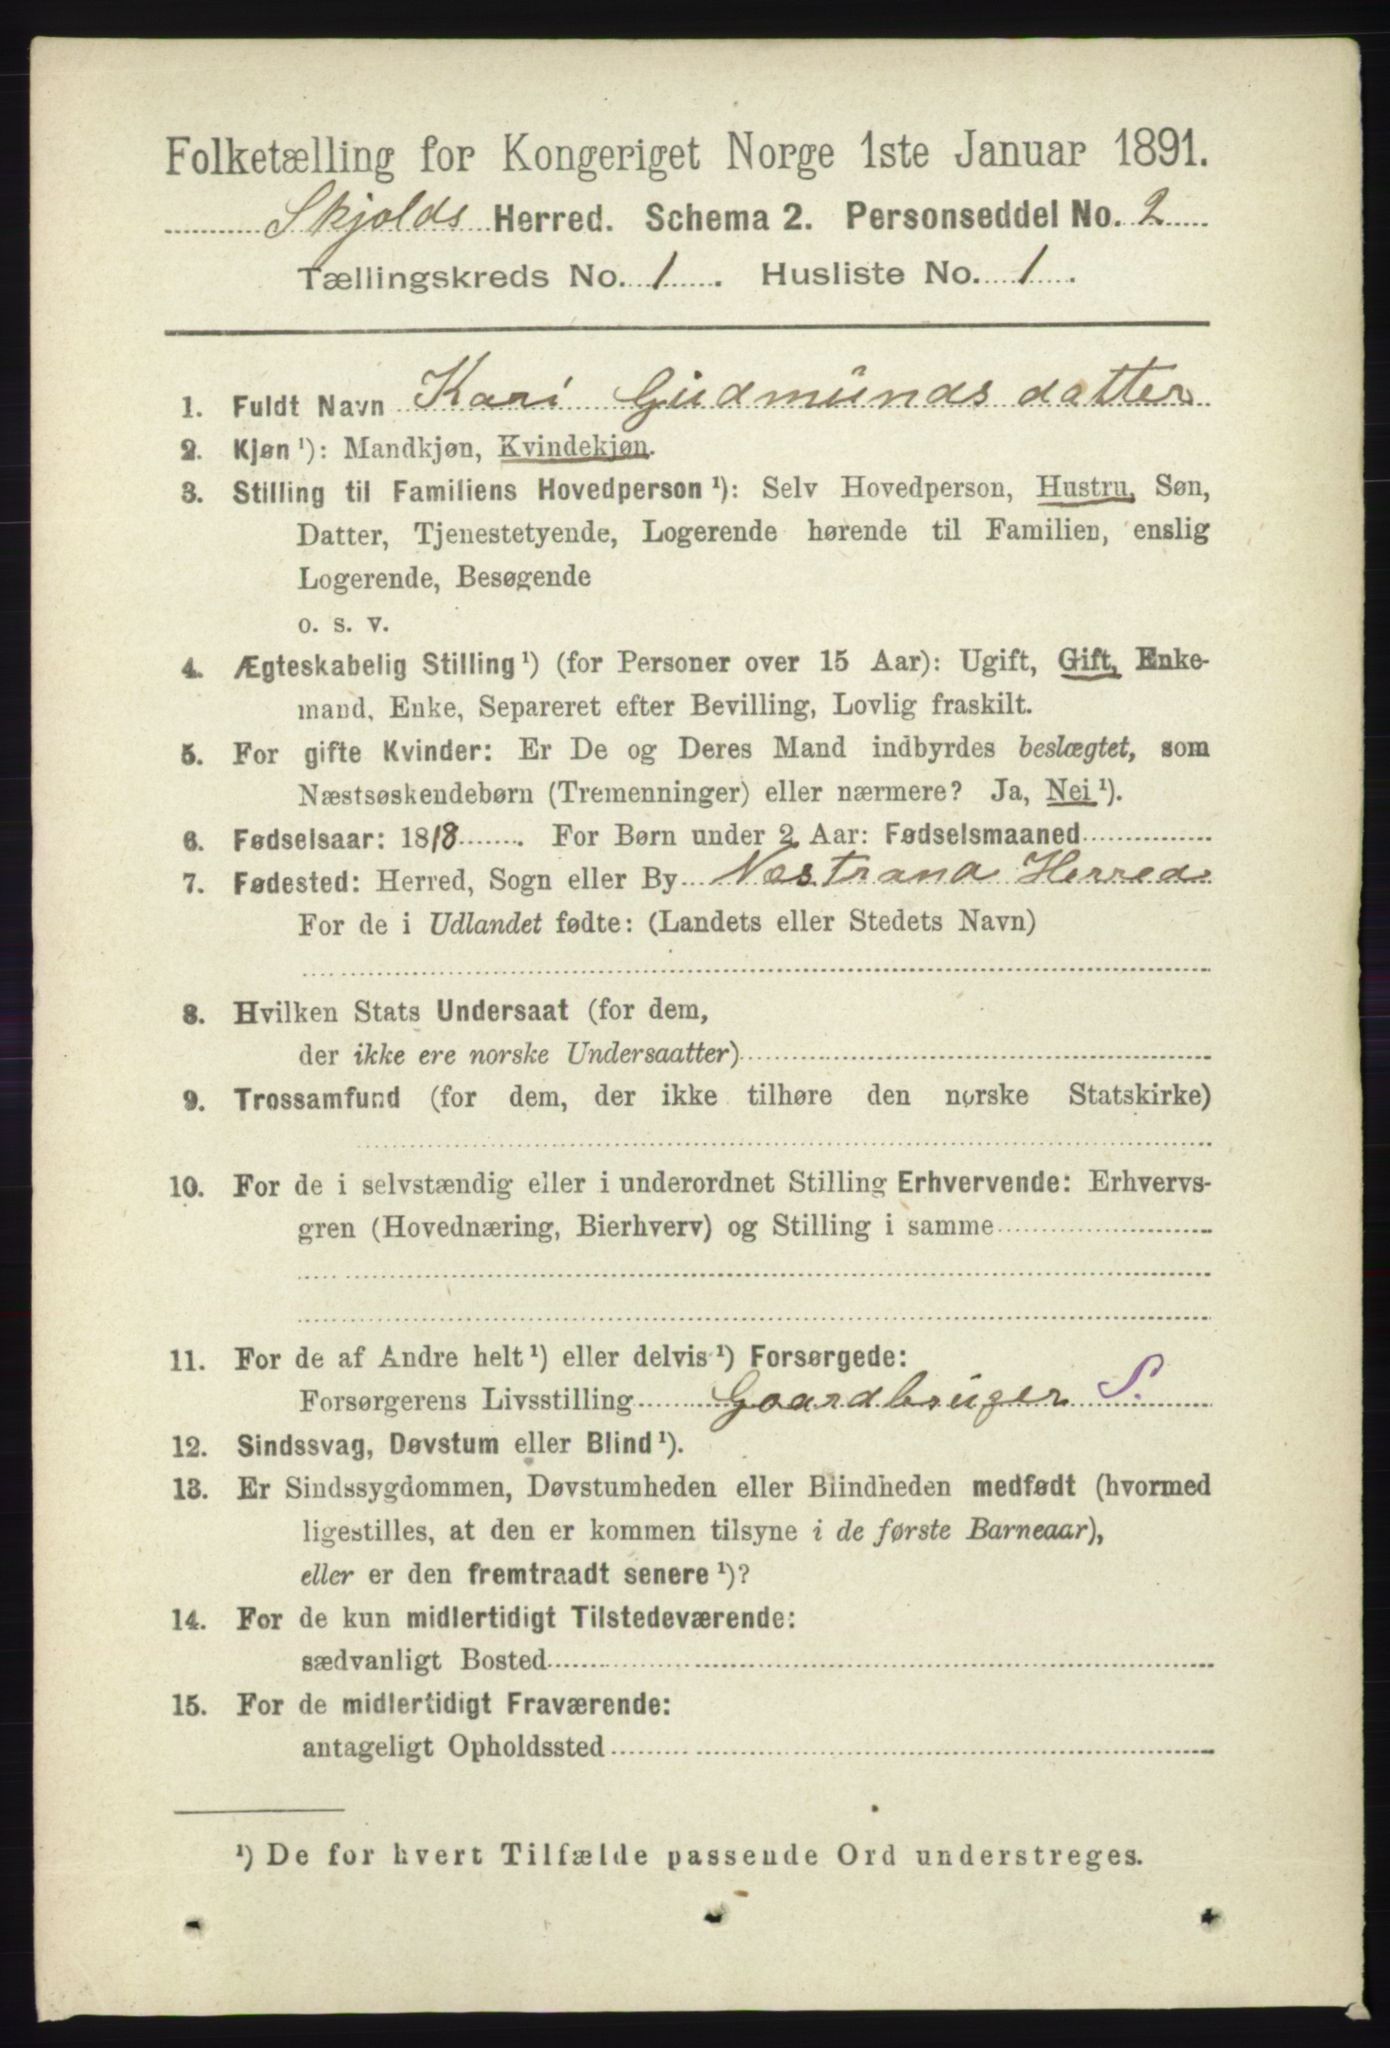 Folketælling for Kongeriget Norge 1ste Januar 1891.
Skjolds Herred. Schema 2. Personseddel No. 2
Tællingskreds No. 1. Husliste No. 1.
1. Fuldt Navn Kari Gudmundsdatter
2. Kjøn ¹): Mandkjøn, Kvindekjøn.
3. Stilling til Familiens Hovedperson ¹): Selv Hovedperson, Hustru, Søn,
Datter, Tjenestetyende, Logerende hørende til Familien, enslig
Logerende, Besøgende
o. s. v.
4. Ægteskabelig Stilling ¹) (for Personer over 15 Aar): Ugift, Gift, Enke-
mand, Enke, Separeret efter Bevilling, Lovlig fraskilt.
5. For gifte Kvinder: Er De og Deres Mand indbyrdes beslægtet, som
Næstsøskendebørn (Tremenninger) eller nærmere? Ja, Nei ¹).
6. Fødselsaar: 1818. For Børn under 2 Aar: Fødselsmaaned
7. Fødested: Herred, Sogn eller By Næstrand Herred
For de i Udlandet fødte: (Landets eller Stedets Navn)
8. Hvilken Stats Undersaat (for dem,
der ikke ere norske Undersaatter)
9. Trossamfund (for dem, der ikke tilhøre den norske Statskirke)
10. For de i selvstændig eller i underordnet Stilling Erhvervende: Erhvervs-
gren (Hovednæring, Bierhverv) og Stilling i samme
11. For de af Andre helt ¹) eller delvis ¹) Forsørgede:
Forsørgerens Livsstilling Gaardbruger S.
12. Sindssvag, Døvstum eller Blind ¹).
13. Er Sindssygdommen, Døvstumheden eller Blindheden medfødt (hvormed
ligestilles, at den er kommen tilsyne i de første Barneaar),
eller er den fremtraadt senere ¹)?
14. For de kun midlertidigt Tilstedeværende:
sædvanligt Bosted
15. For de midlertidigt Fraværende:
antageligt Opholdssted
¹) De for hvert Tilfælde passende Ord understreges.